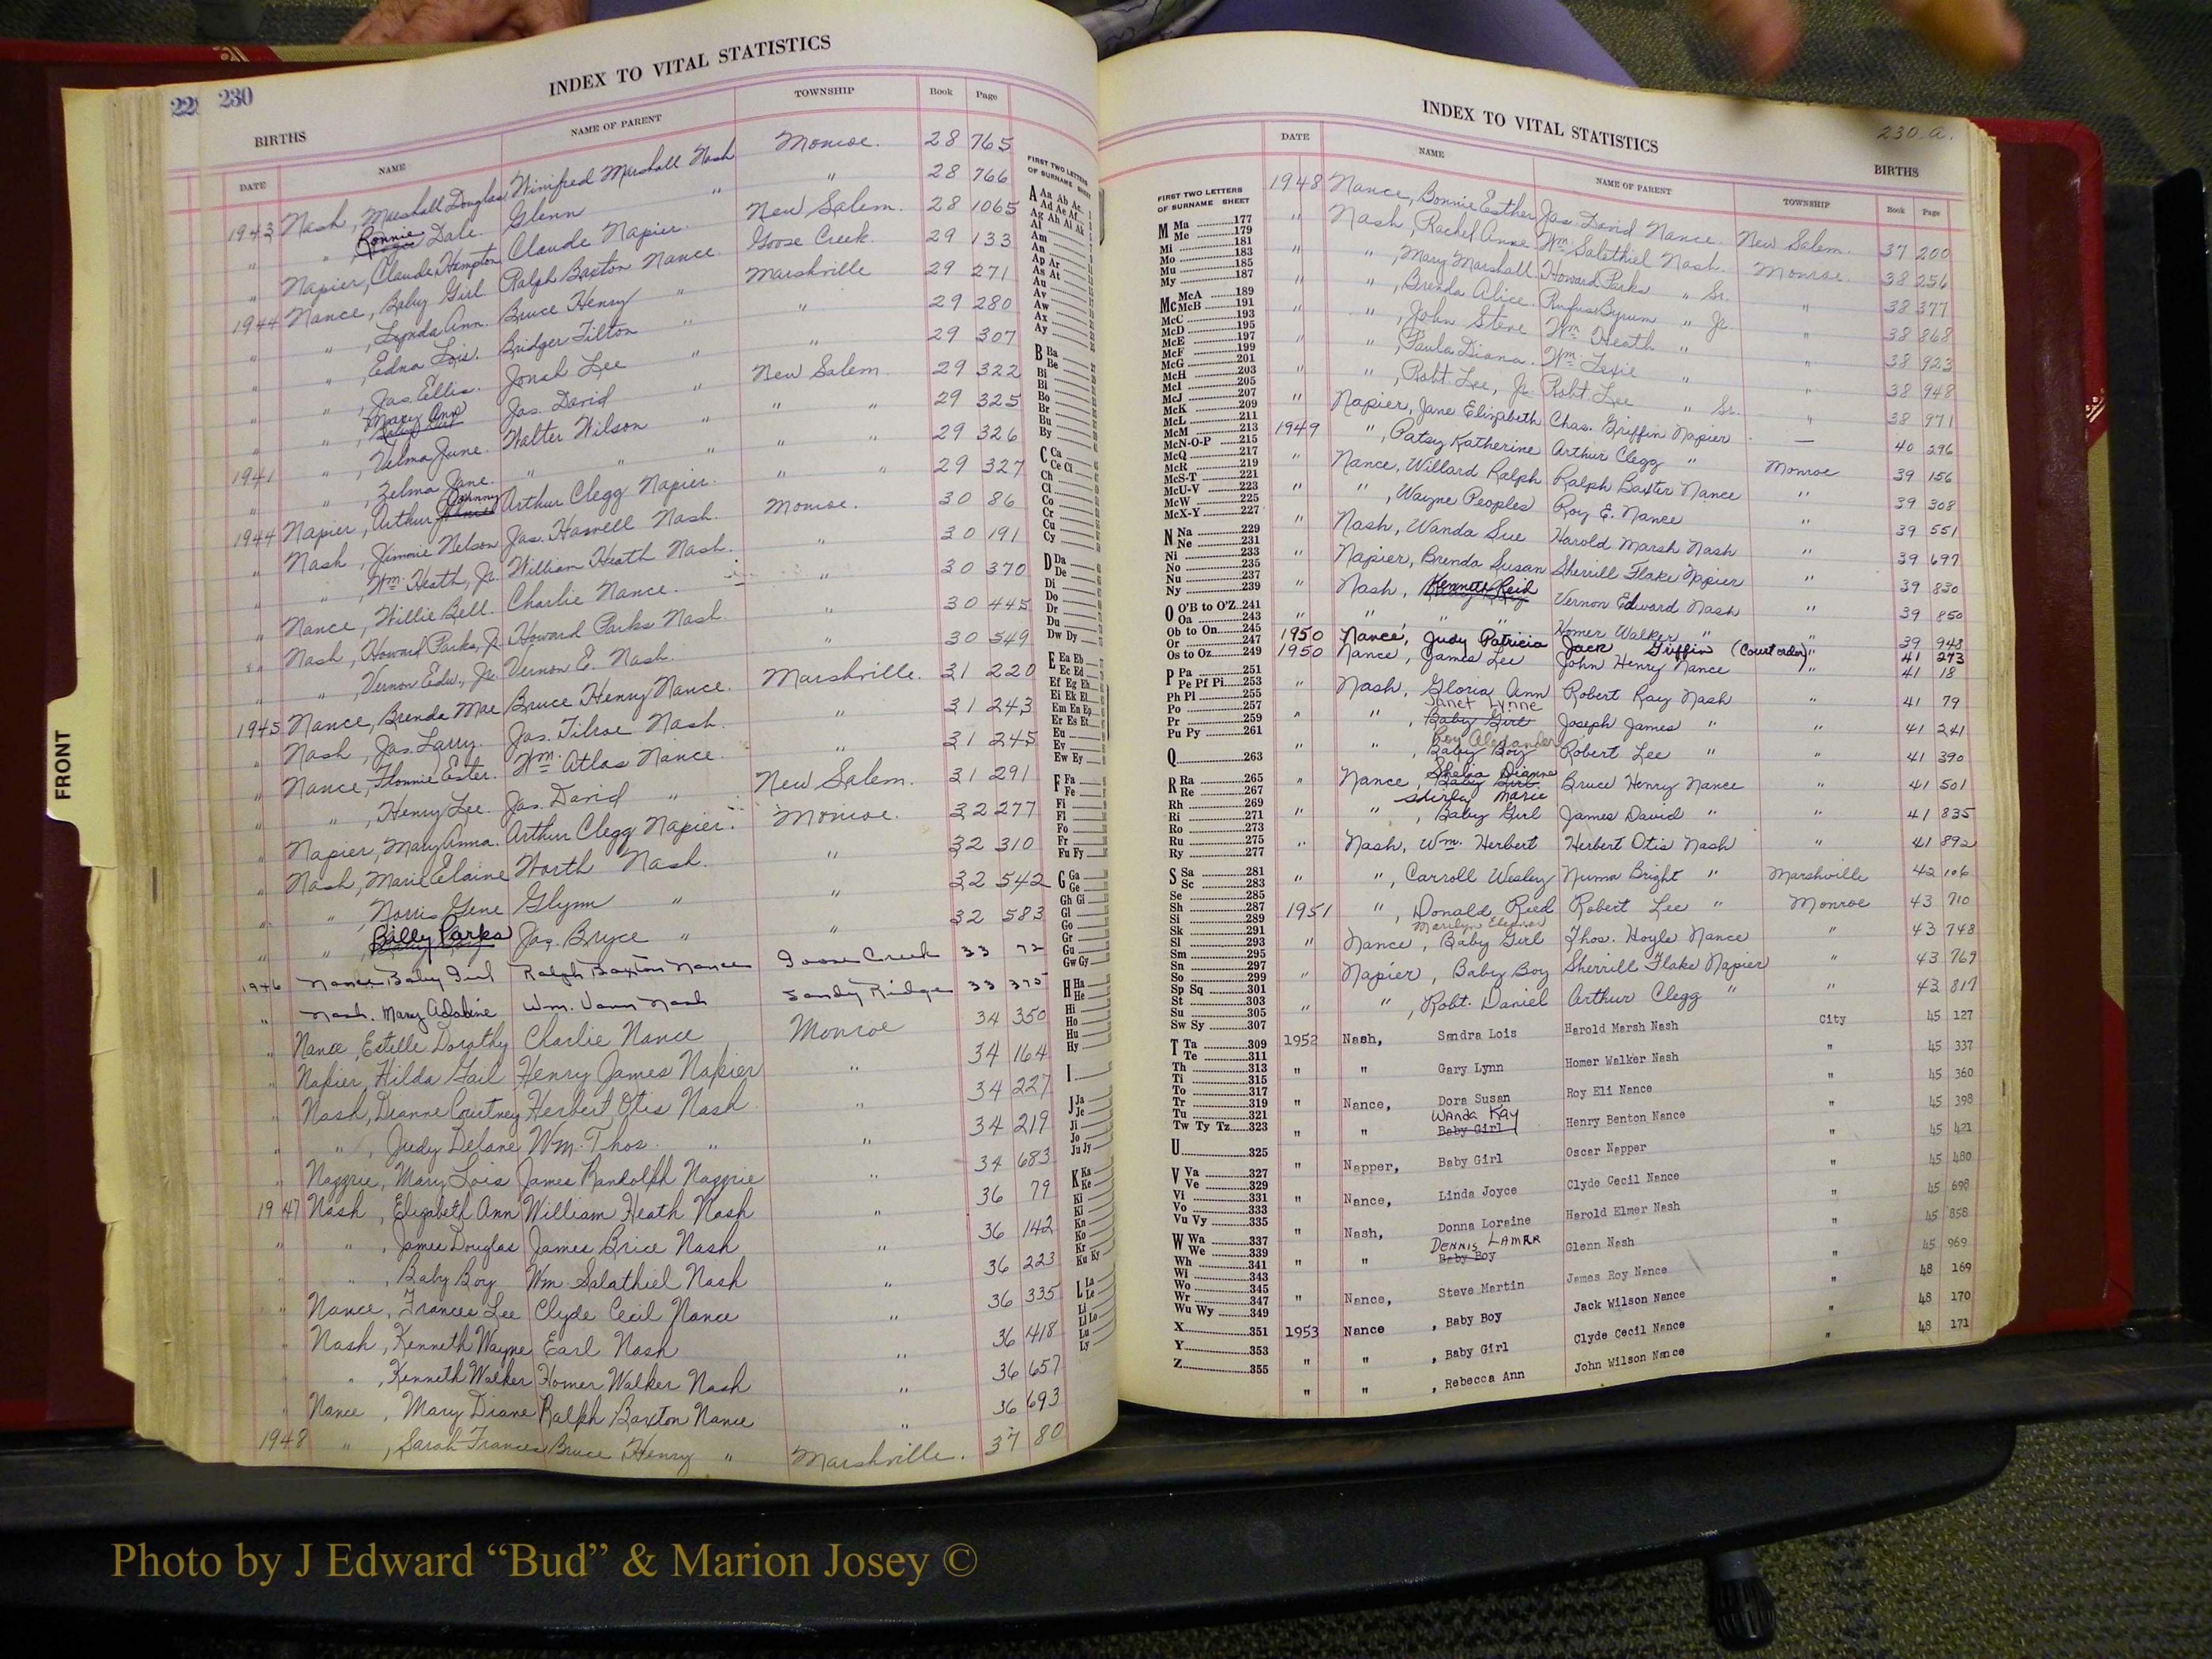 22 230
INDEX TO VITAL STATISTICS
BIRTHS
DATE NAME NAME OF PARENT TOWNSHIP Book Page
1943 Nash, Marshall Douglas Winifred Marshall Nash Monroe. 28 765
" " , Ronnie Dale. Glenn " " 28 766
" Napier, Claude Hampton Claude Napier. New Salem. 28 1065
1944 Nance, Baby Girl Ralph Baxton Nance Goose Creek. 29 133
" " , Lynda Ann. Bruce Henry " Marshville 29 271
" " , Edna Lois. Bridger Tilton " " 29 280
" " , Jas. Ellis. Jonah Lee " " 29 307
" " , Mary Ann Jas. David " New Salem. 29 322
1941 " , Velma June. Walter Wilson " " " 29 325
" " , Zelma Jane. " " " " " 29 326
1944 Napier, Arthur Johnny Arthur Clegg Napier. " " 29 327
" Nash, Jimmie Nelson Jas. Haswell Nash. Monroe. 30 86
" " , Wm. Heath, Jr. William Heath Nash. " 30 191
" Nance, Willie Bell. Charlie Nance. " 30 370
" Nash, Howard Parks, Jr. Howard Parks Nash. " 30 445
" " , Vernon Edw., Jr. Vernon E. Nash. " 30 549
1945 Nance, Brenda Mae Bruce Henry Nance. Marshville. 31 220
" Nash, Jas. Larry. Jas. Tilroe Nash. " 31 243
" Nance, Flonnie Ester. Wm. Atlas Nance. " 31 245
" " , Henry Lee. Jas. David " New Salem. 31 291
" Napier, Mary Anna. Arthur Clegg Napier. Monroe. 32 277
" Nash, Marie Elaine Worth Nash. " 32 310
" " Norris Gene Glynn " " 32 542
" " , Billy Parks Jas. Bryce " " 32 583
1946 Nance Baby Girl Ralph Baxton Nance Goose Creek 33 72
" Nash. Mary Adaline Wm. Vann Nash Sandy Ridge 33 375
" Nance, Estelle Dorothy Charlie Nance Monroe 34 350
" Napier, Hilda Gail Henry James Napier " 34 164
" Nash, Dianne Courtney Herbert Otis Nash " 34 227
" " , Judy Delane Wm. Thos. " " 34 219
" Naggie, Mary Lois James Randolph Naggie " 34 683
1947 Nash, Elizabeth Ann William Heath Nash " 36 79
" " , James Douglas James Brice Nash " 36 142
" " , Baby Boy Wm. Salathiel Nash " 36 223
" Nance, Frances Lee Clyde Cecil Nance " 36 335
" Nash, Kenneth Wayne Earl Nash " 36 418
" " , Kenneth Walker Homer Walker Nash " 36 657
" Nance, Mary Diane Ralph Baxton Nance " 36 693
1948 " , Sarah Frances Bruce Henry " Marshville. 37 80
FIRST TWO LETTERS
OF SURNAME SHEET
A Aa Ab Ac
Ad Ae Af
Ag Ah Ai Ak
Al
Am
An
Ap Ar
As At
Au
Av
Aw
Ax
Ay
B Ba
Be
Bi
Bl
Bo
Br
Bu
By
C Ca
Ce Ci
Ch
Cl
Co
Cr
Cu
Cy
D Da
De
Di
Do
Dr
Du
Dw Dy
E Ea Eb
Ec Ed
Ef Eg Eh
Ei Ek El
Em En Ep
Er Es Et
Eu
Ev
Ew Ey
F Fa
Fe
Fi
Fl
Fo
Fr
Fu Fy
G Ga
Ge
Gh Gi
Gl
Go
Gr
Gu
Gw Gy
H Ha
He
Hi
Ho
Hu
Hy
I
J Ja
Je
Ji
Jo
Ju Jy
K Ka
Ke
Ki
Kl
Kn
Ko
Kr
Ku Ky
L La
Le
Li
Ll Lo
Lu
Ly
INDEX TO VITAL STATISTICS 230 a.
BIRTHS
DATE NAME NAME OF PARENT TOWNSHIP Book Page
FIRST TWO LETTERS
OF SURNAME SHEET
M Ma 177
Me 179
Mi 181
Mo 183
Mu 185
My 187
Mc McA 189
McB 191
McC 193
McD 195
McE 197
McF 199
McG 201
McH 203
McI 205
McJ 207
McK 209
McL 211
McM 213
McN-O-P 215
McQ 217
McR 219
McS-T 221
McU-V 223
McW 225
McX-Y 227
N Na 229
Ne 231
Ni 233
No 235
Nu 237
Ny 239
O O'B to O'Z 241
Oa 243
Ob to On 245
Or 247
Os to Oz 249
P Pa 251
Pe Pf Pi 253
Ph Pl 255
Po 257
Pr 259
Pu Py 261
Q 263
R Ra 265
Re 267
Rh 269
Ri 271
Ro 273
Ru 275
Ry 277
S Sa 281
Sc 283
Se 285
Sh 287
Si 289
Sk 291
Sl 293
Sm 295
Sn 297
So 299
Sp Sq 301
St 303
Su 305
Sw Sy 307
T Ta 309
Te 311
Th 313
Ti 315
To 317
Tr 319
Tu 321
Tw Ty Tz 323
U 325
V Va 327
Ve 329
Vi 331
Vo 333
Vu Vy 335
W Wa 337
We 339
Wh 341
Wi 343
Wo 345
Wr 347
Wu Wy 349
X 351
Y 353
Z 355
1948 Nance, Bonnie Esther Jas. David Nance. New Salem. 37 200
" Nash, Rachel Anne Wm. Salathiel Nash. Monroe. 38 256
" " , Mary Marshall Howard Parks " Sr. " 38 377
" " , Brenda Alice. Rufus Byrum " Jr. " 38 868
" " , John Steve Wm. Heath " " 38 923
" " , Paula Diana. Wm. Lexie " " 38 948
" " , Robt. Lee, Jr. Robt. Lee " Sr. " 38 971
" Napier, Jane Elizabeth Chas. Griffin Napier — 40 296
1949 " , Patsy Katherine Arthur Clegg " Monroe 39 156
" Nance, Willard Ralph Ralph Baxter Nance " 39 308
" " , Wayne Peoples Roy E. Nance " 39 551
" Nash, Wanda Sue Harold Marsh Nash " 39 697
" Napier, Brenda Susan Sherrill Flake Napier " 39 830
" Nash, Kenneth Reid Vernon Edward Nash " 39 850
" " " " Homer Walker " " 39 948
1950 Nance, Judy Patricia Jack Griffin (Court order) " 41 273
1950 Nance, James Lee John Henry Nance " 41 18
" Nash, Gloria Ann Robert Ray Nash " 41 79
Janet Lynne
" " , Baby Girl Joseph James " " 41 241
Roy Alexander
" " , Baby Boy Robert Lee " " 41 390
Shelia Dianne
" Nance, Baby Girl Bruce Henry Nance " 41 501
Shirley Marie
" " , Baby Girl James David " " 41 835
" Nash, Wm. Herbert Herbert Otis Nash " 41 892
" " , Carroll Wesley Numa Bright " Marshville 42 106
1951 " , Donald Reed Robert Lee " Monroe 43 710
Marilyn Eleanor
" Nance, Baby Girl Thos. Hoyle Nance " 43 748
" Napier, Baby Boy Sherrill Flake Napier " 43 769
" " , Robt. Daniel Arthur Clegg " " 43 817
1952 Nash, Sandra Lois Harold Marsh Nash City 45 127
" " Gary Lynn Homer Walker Nash " 45 337
" Nance, Dora Susan Roy Eli Nance " 45 360
WANDA KAY
" " Baby Girl Henry Benton Nance " 45 398
" Napper, Baby Girl Oscar Napper " 45 421
" Nance, Linda Joyce Clyde Cecil Nance " 45 480
" Nash, Donna Loraine Harold Elmer Nash " 45 698
DENNIS LAMAR
" " Baby Boy Glenn Nash " 45 858
" Nance, Steve Martin James Roy Nance " 45 969
1953 Nance , Baby Boy Jack Wilson Nance " 48 169
" " , Baby Girl Clyde Cecil Nance " 48 170
" " , Rebecca Ann John Wilson Nance " 48 171
FRONT
Photo by J Edward “Bud” & Marion Josey ©